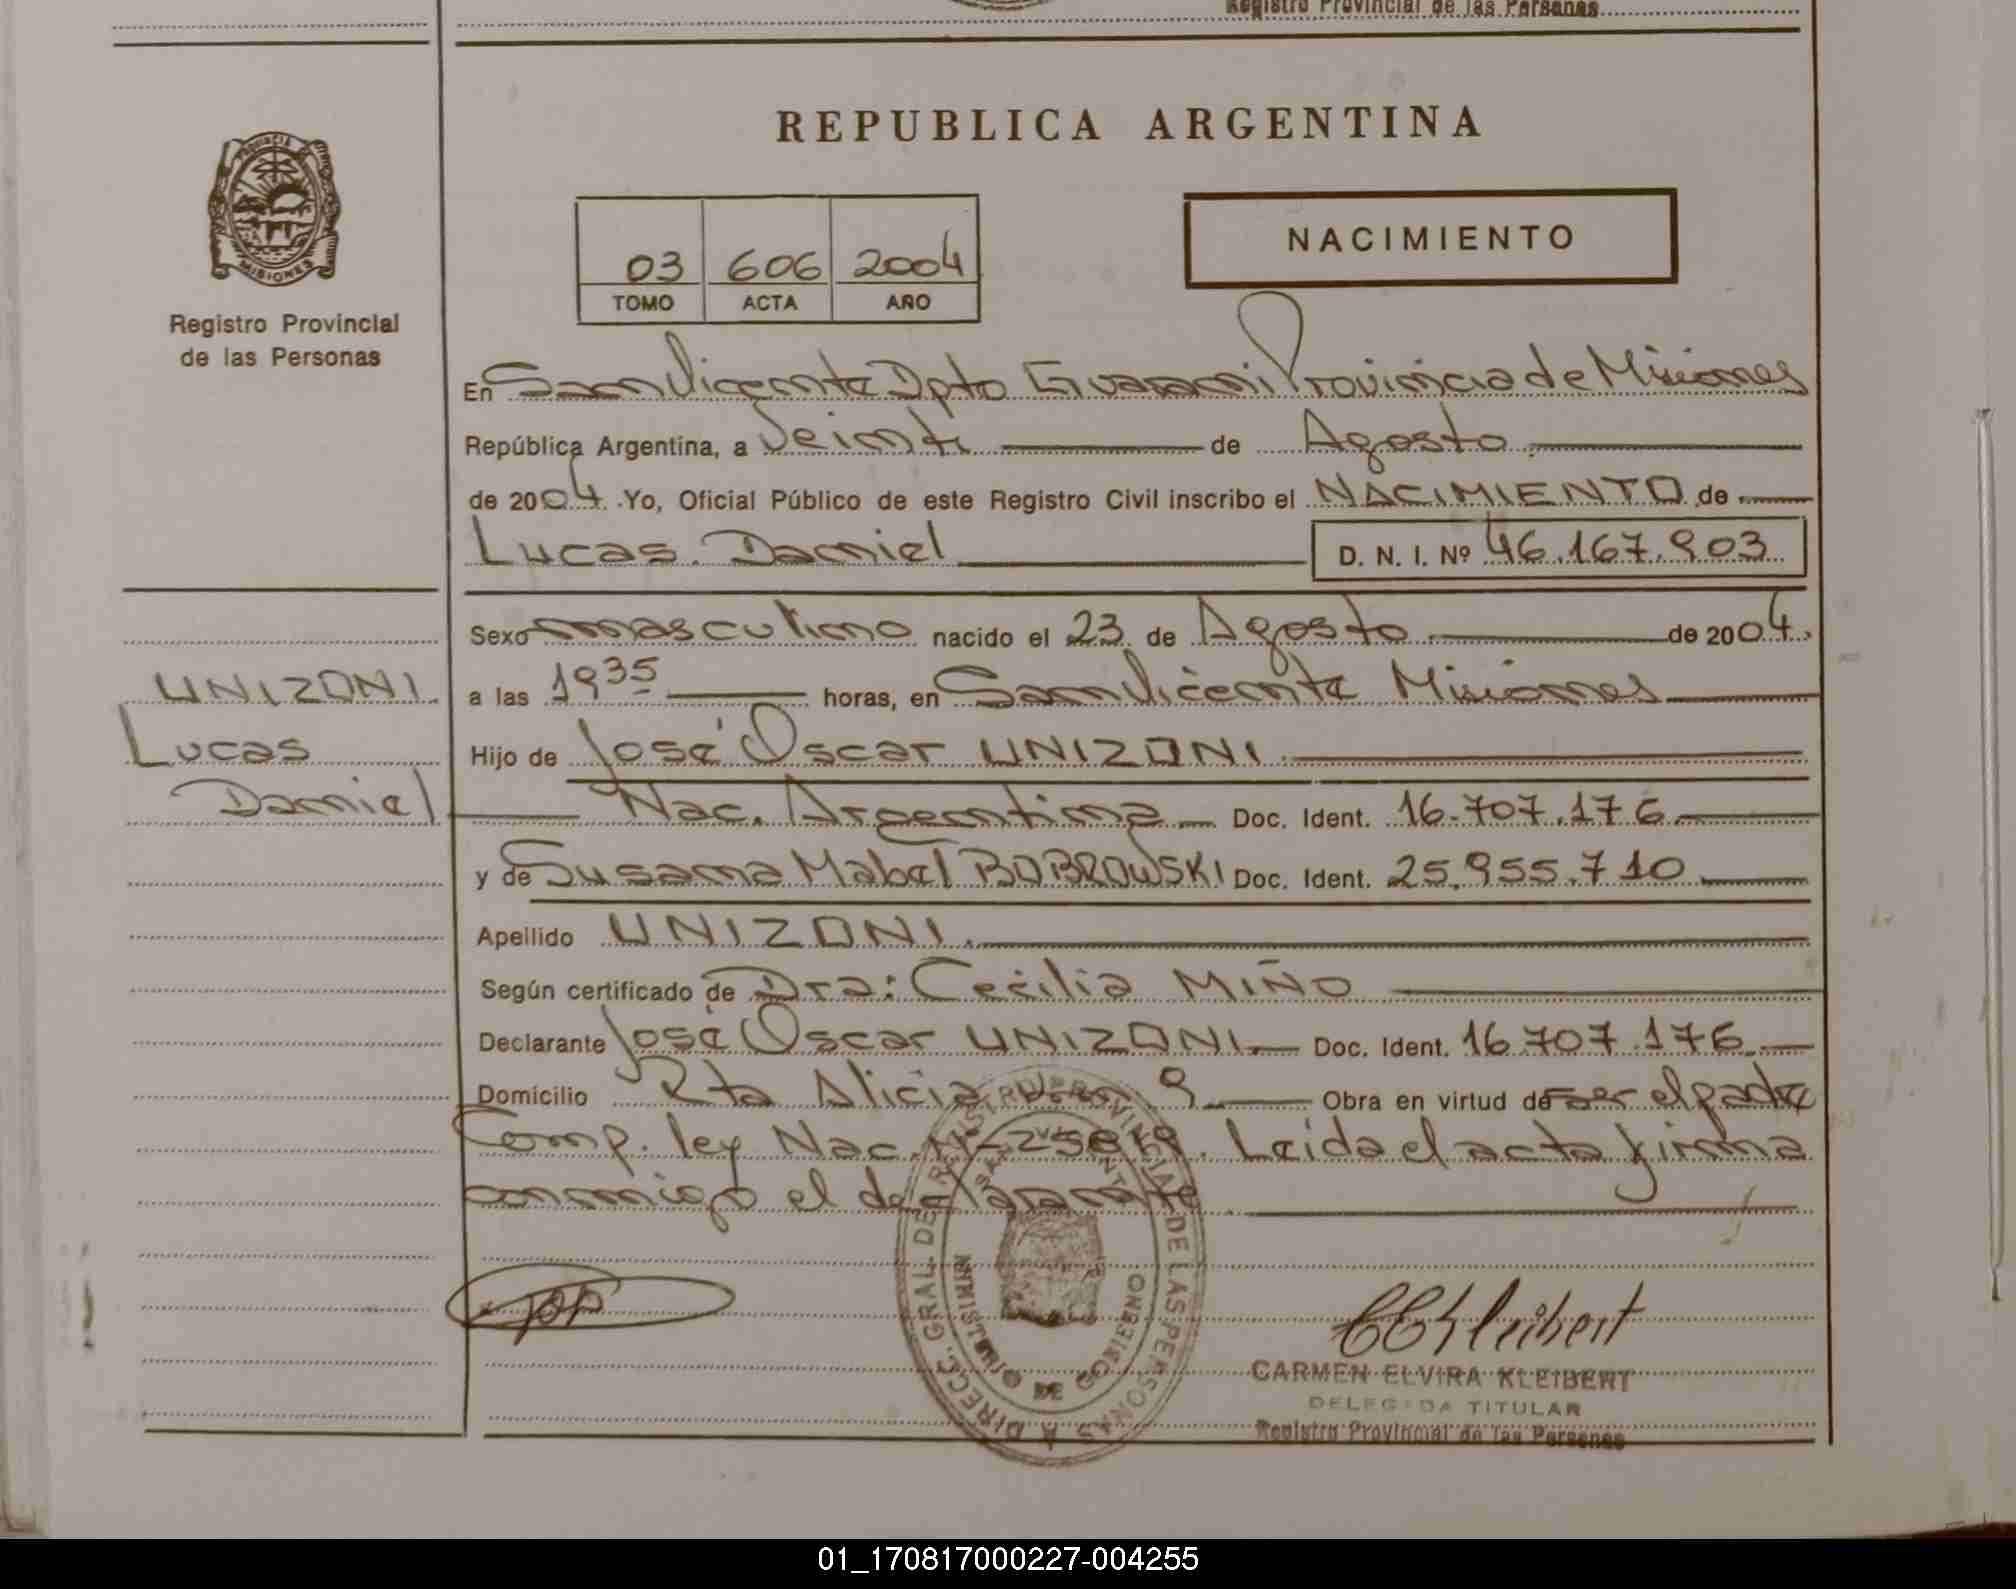 Registro Provincial de las Personas
REPUBLICA ARGENTINA
MISIONES
Registro Provincial
de las Personas
03 606 2004
TOMO ACTA AÑO
NACIMIENTO
En San Vicente Dpto Guarani Provincia de Misiones
República Argentina, a Veinti de Agosto
de 2004 Yo, Oficial Público de este Registro Civil inscribo el NACIMIENTO de
Lucas Daniel D. N. I. Nº 46.167.903
Sexo masculino nacido el 23 de Agosto de 2004.
a las 19 35 horas, en San Vicente Misiones
Hijo de José Oscar UNIZONI
Nac. Argentina Doc. Ident. 16.707.176
y de Susana Mabel BOBROWSKI Doc. Ident. 25.955.710
Apellido UNIZONI
Según certificado de Dra: Cecilia MIÑO
Declarante José Oscar UNIZONI Doc. Ident. 16.707.176
Domicilio Rta Alicia 9 Obra en virtud de ser el padre
Comp. ley Nac. Leida el acta firma
conmigo el declarante
UNIZONI
Lucas
Daniel
DIRECC. GRAL. DE REGISTRO PROVINCIAL DE LAS PERSONAS
MINISTERIO DE GOBIERNO
CEKleibert
CARMEN ELVIRA KLEIBERT
DELEGADA TITULAR
Registro Provincial de las Personas
01_170817000227-004255